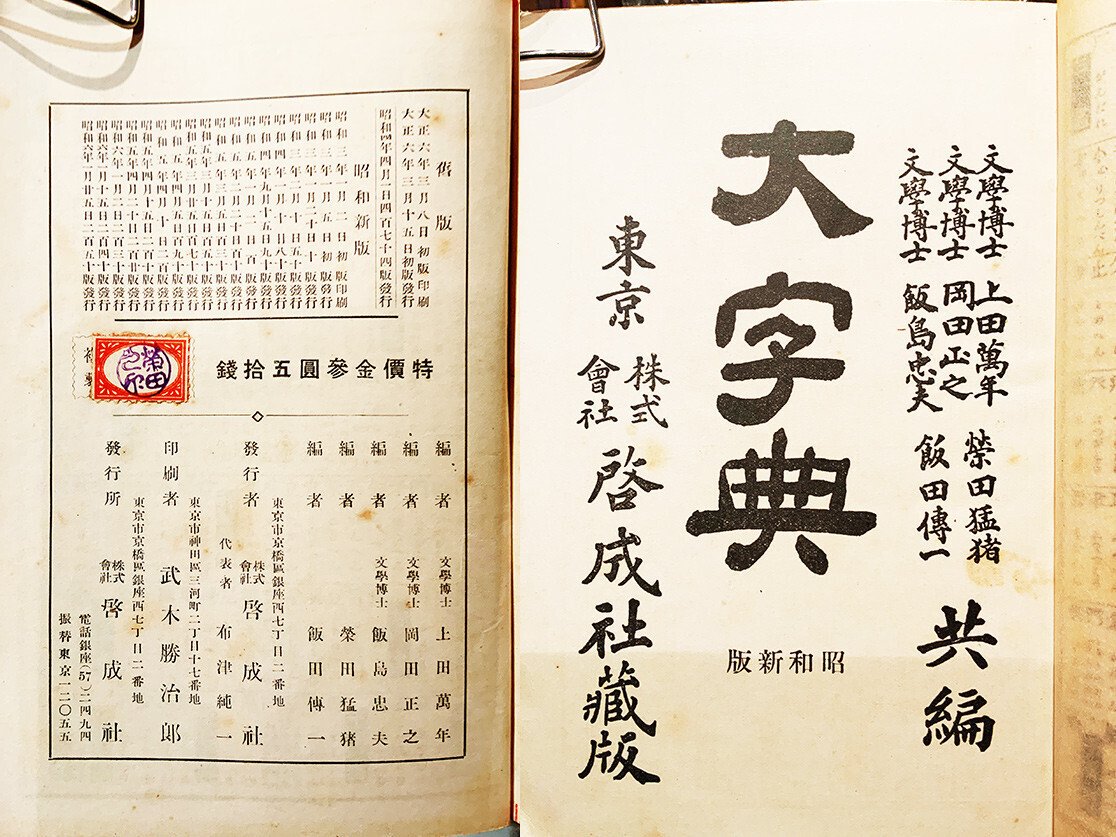 文學博士 上田萬年
文學博士 岡田正之
文學博士 飯島忠夫
榮田猛猪
飯田傳一
共編
大字典
昭和新版
東京 株式會社 啓成社藏版
舊版
大正六年三月八日初版印刷
大正六年三月十五日初版發行
昭和四年四月一日四百七十四版發行
昭和新版
昭和三年一月二日初版印刷
昭和三年一月五日初版發行
昭和三年一月二十日十版發行
昭和三年二月十日五十版發行
昭和四年一月十日八十版發行
昭和四年九月十五日九十版發行
昭和五年一月一日百版發行
昭和五年二月
昭和五年三月
昭和五年三月十五日百七十版發行
昭和五年四月十日二百版發行
昭和五年四月十五日二百十版發行
昭和六年一月二日二百三十版發行
昭和六年
昭和六年 月廿五日二百五十版發行
特價金參圓五拾錢
編者 文學博士 上田萬年
編者 文學博士 岡田正之
編者 文學博士 飯島忠夫
編者 榮田猛猪
編者 飯田傳一
東京市京橋區銀座西七丁目二番地
發行者 株式會社 啓成社
代表者 布津純一
東京市神田區三河町二丁目十七番地
印刷者 武木勝治郎
東京市京橋區銀座西七丁目二番地
發行所 株式會社 啓成社
電話銀座(57)二四九四
振替東京一二〇五五